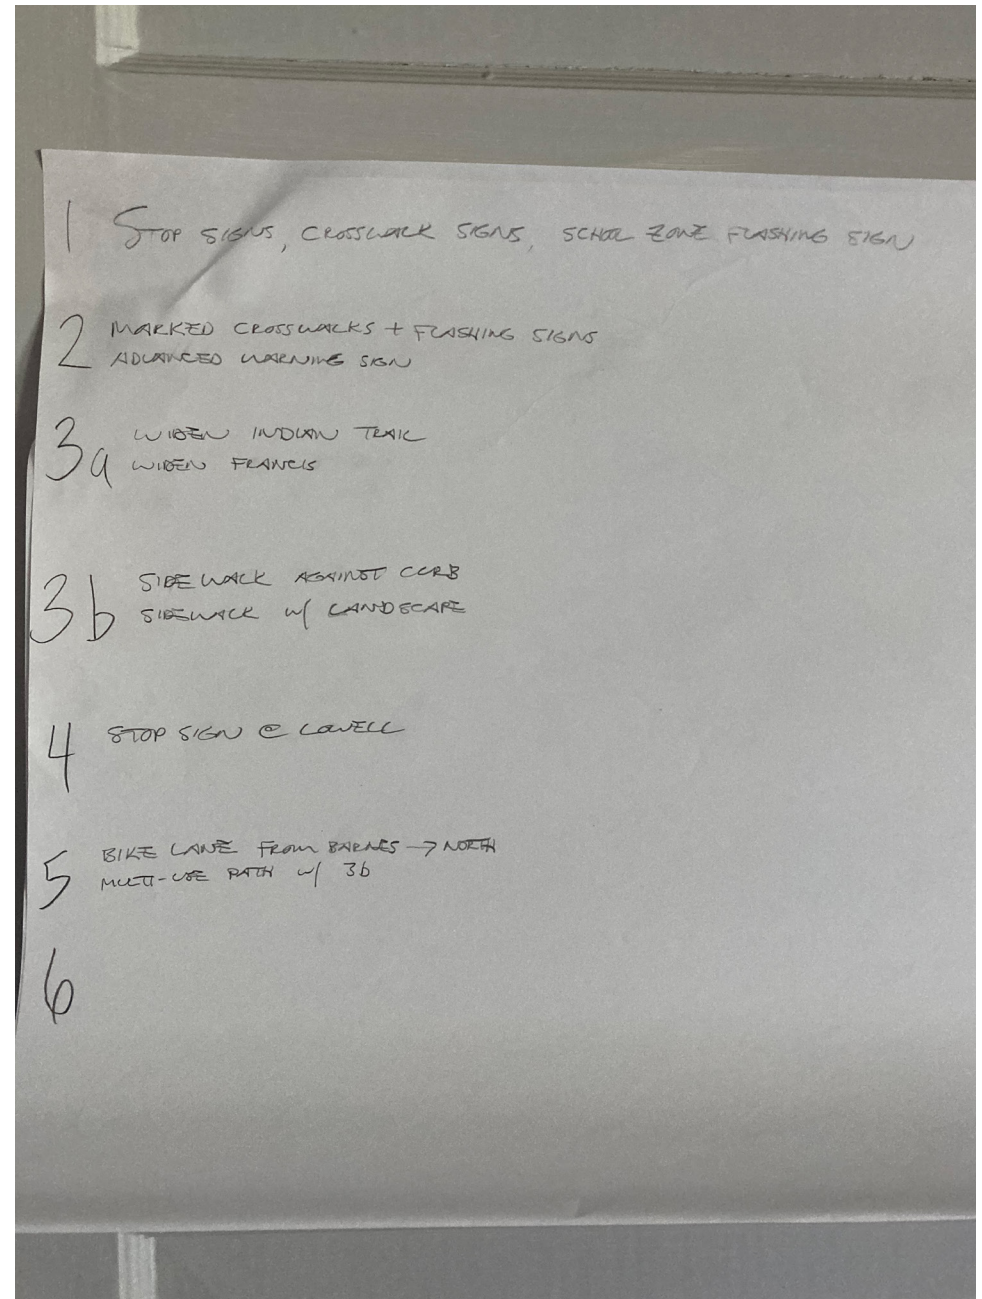 1 STOP SIGNS, CROSSWALK SIGNS, SCHOOL ZONE FLASHING SIGN
2 MARKED CROSSWALKS + FLASHING SIGNS
ADVANCED WARNING SIGN
3a WIDEN INDIAN TRAIL
WIDEN FRANCIS
3b SIDEWALK AGAINST CURB
SIDEWALK w/ LANDSCAPE
4 STOP SIGN @ LOWELL
5 BIKE LANE FROM BARNES → NORTH
MULTI-USE PATH w/ 3b
6